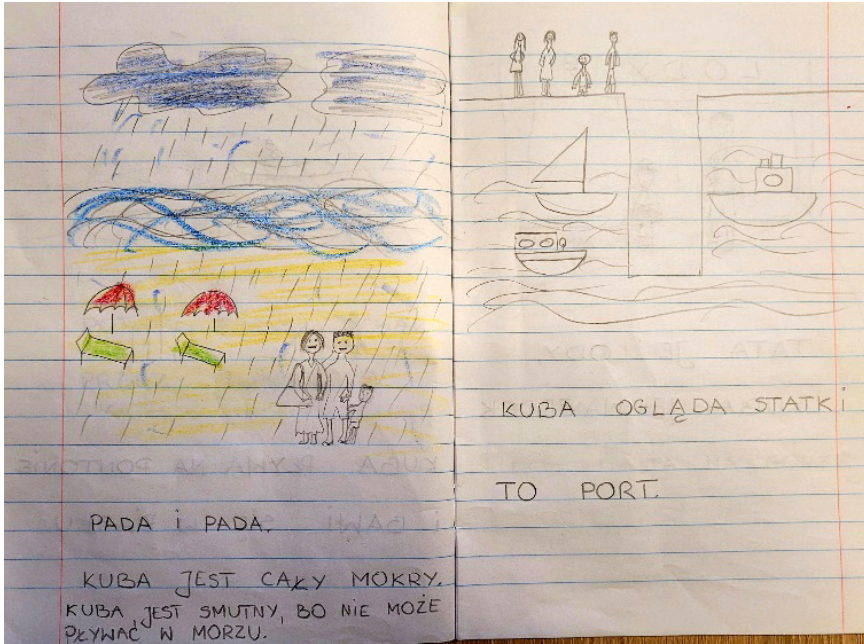 PADA i PADA.
KUBA JEST CAŁY MOKRY.
KUBA JEST SMUTNY, BO NIE MOŻE
PŁYWAĆ W MORZU.
KUBA OGLĄDA STATKi
TO PORT.